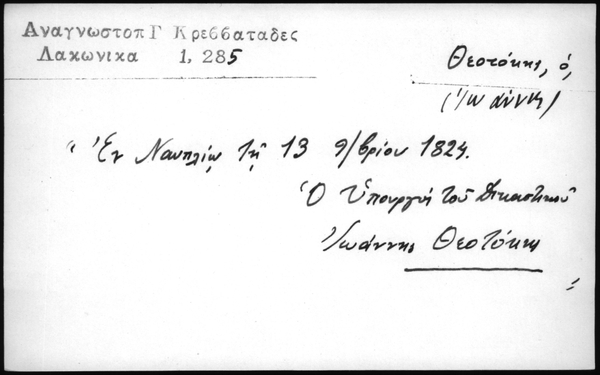 Αναγνωστοπ Γ Κρεββαταδες
Λακωνικα 1, 285
Θεοτόκης, ὁ,
(Ἰωάννης)
"Ἐν Ναυπλίῳ τῇ 13 9/βρίου 1824.
Ὁ Ὑπουργὸς τοῦ Δικαστικοῦ
Ἰωάννης Θεοτόκης
"